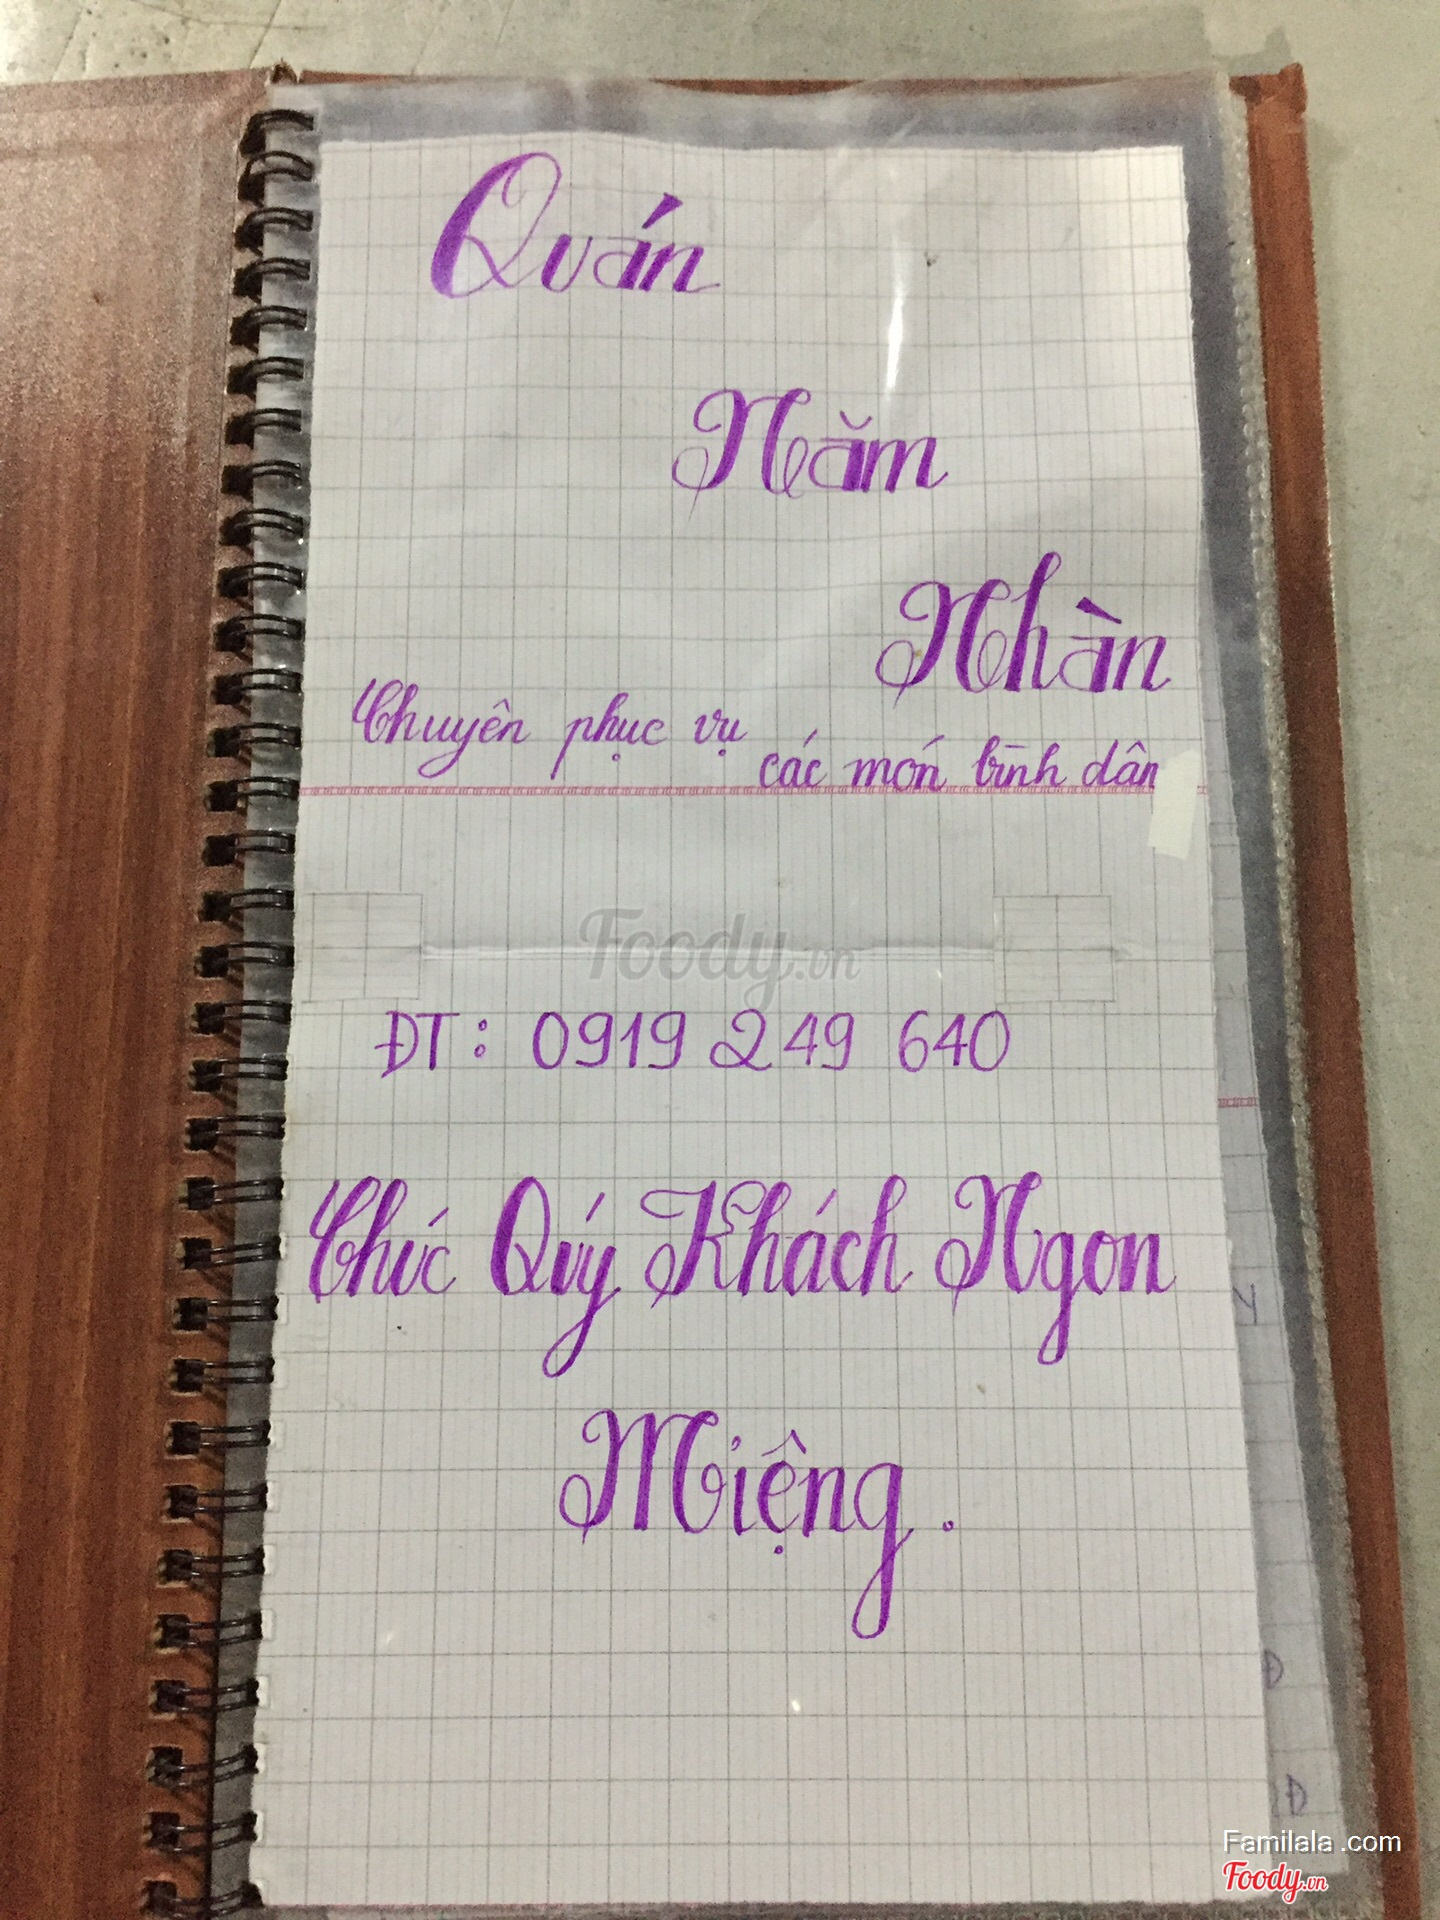 Quán
Năm
Nhàn
Chuyên phục vụ
các món bình dân
Foody.vn
ĐT: 0919 249 640
Chúc Quý Khách Ngon
Miệng.
Y
Đ
Đ
Familala .com
Foody.vn